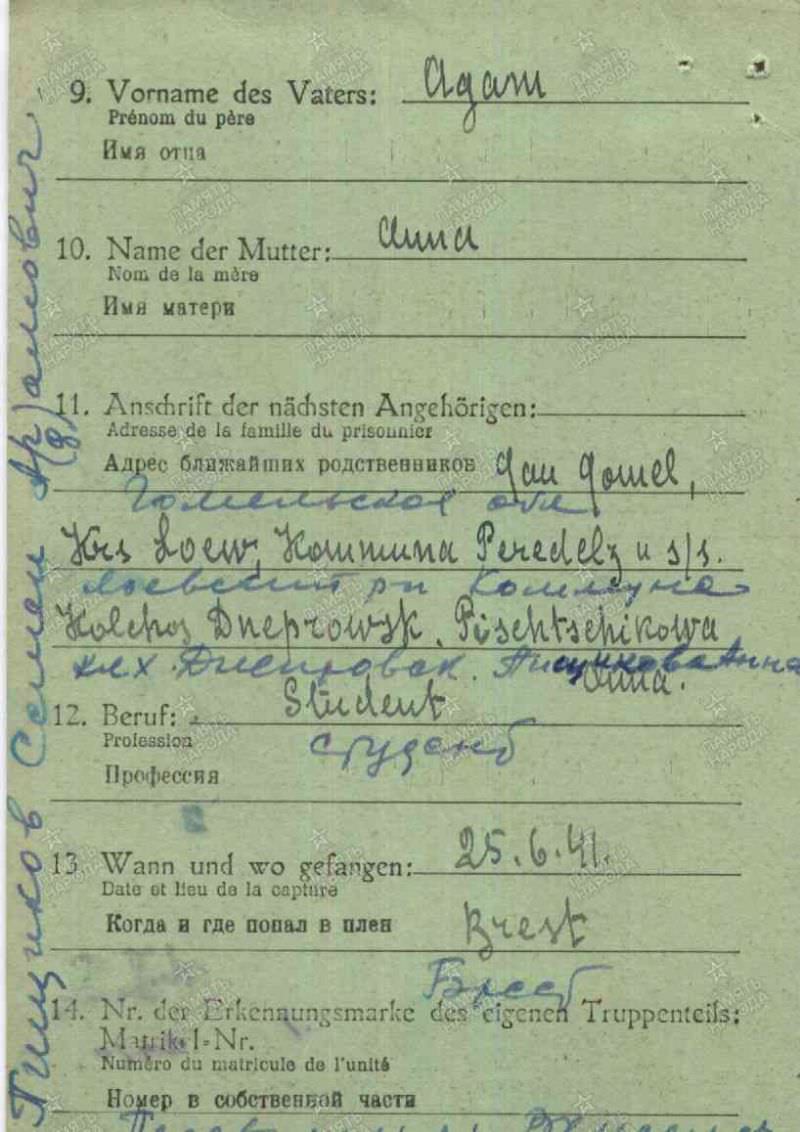 9. Vorname des Vaters: Agam
Prénom du père
Имя отца
10. Name der Mutter: Anna
Nom de la mère
Имя матери
11. Anschrift der nächsten Angehörigen:
Adresse de la famille du prisonnier
Адрес ближайших родственников Gau Gomel,
Гомельская обл
Krs Loew, Kommuna Peredelz u s/s.
Лоевский рн Коммуна
Kolchos Dneprowsk, Pischtschikowa
клх. Днепровск. Пищикова Анна
Anna.
12. Beruf: Student
Profession
студент
Профессия
13. Wann und wo gefangen: 25.6.41.
Date et lieu de la capture
Когда и где попал в плен Brest
Брест
14. Nr. der Erkennungsmarke des eigenen Truppenteils:
Matrikel-Nr.
Numéro du matricule de l'unité
Номер в собственной части
Пищиков Семен